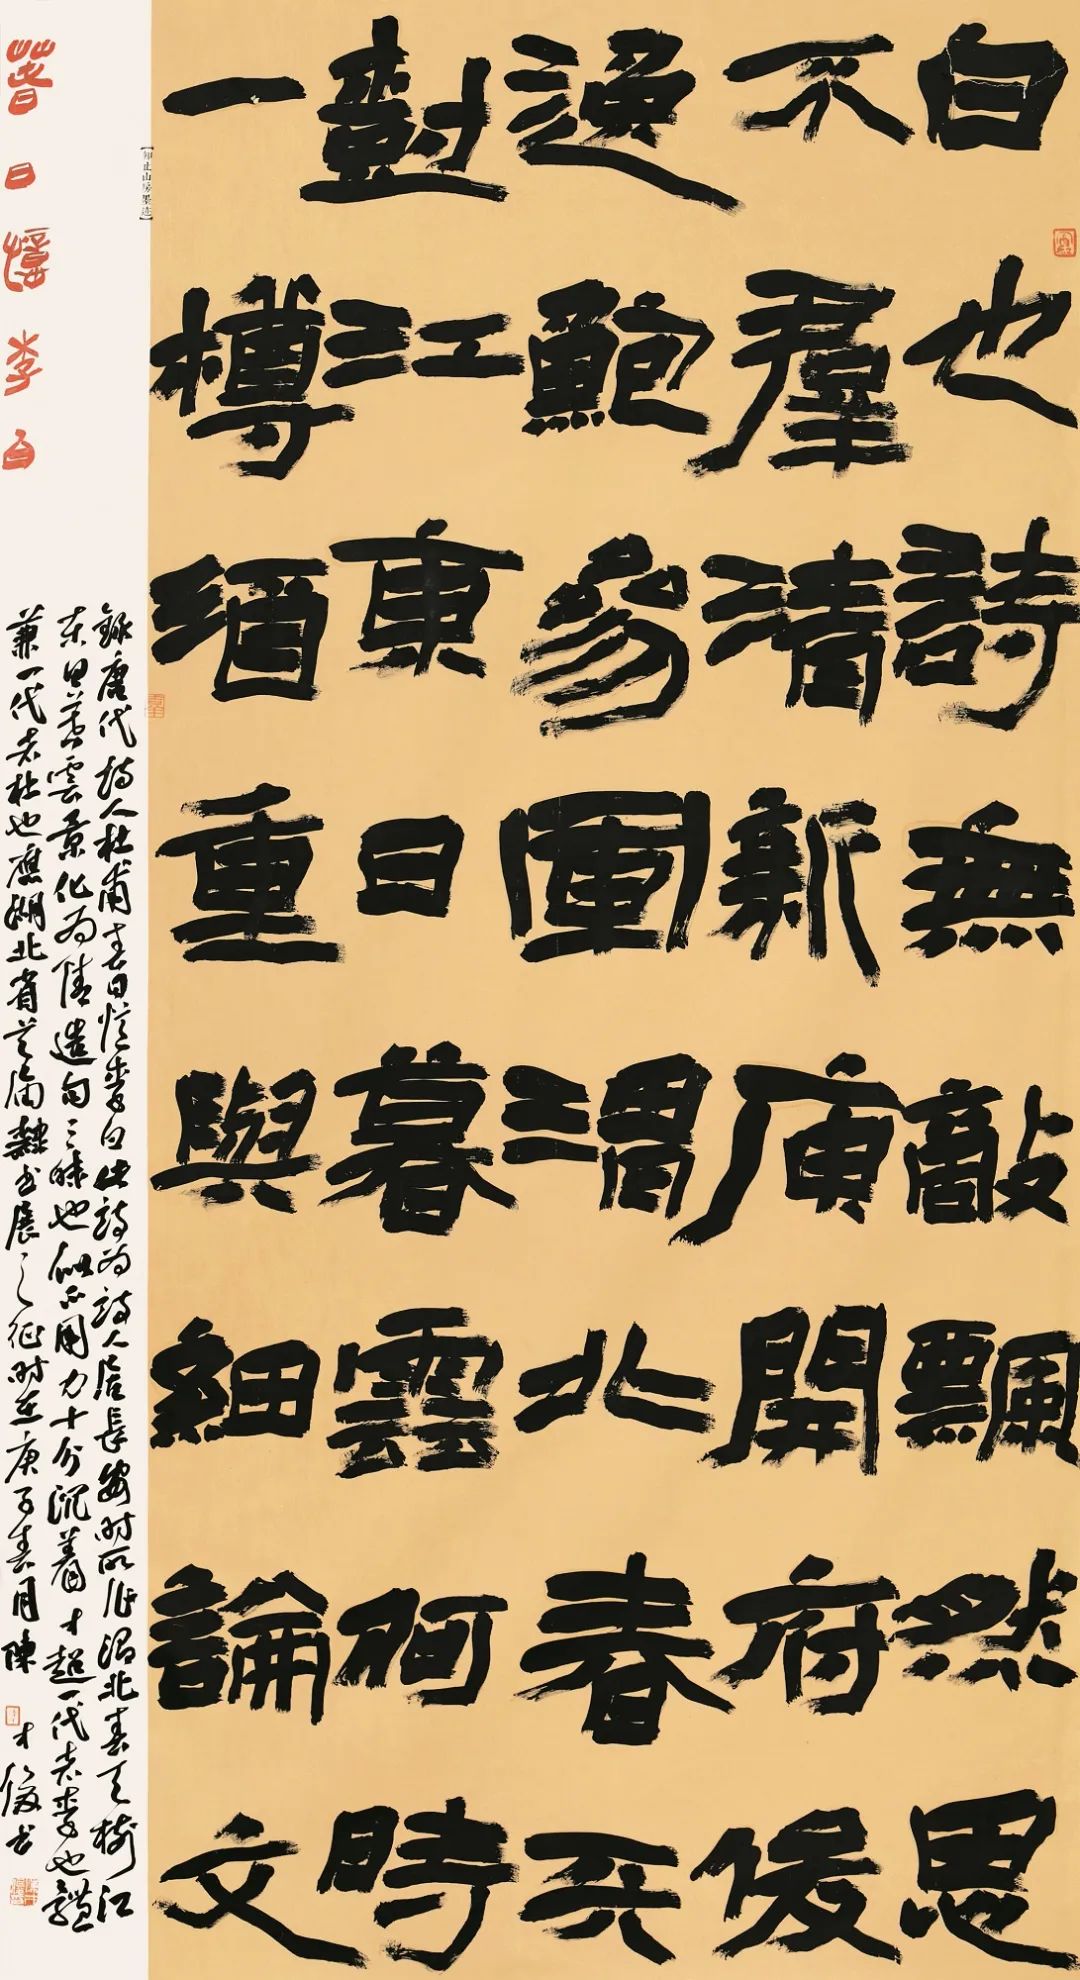 白也詩無敵飄然思
不羣清新庾開府俊
逸鮑參軍渭北春天
樹江東日暮雲何時
一樽酒重與細論文
【知止山房墨迹】
春日憶李白
錄唐代詩人杜甫春日憶李白此詩為詩人居長安時所作渭北春天樹江
东日暮雲景化为情造句三昧也似不用力十分沉着才超一代者李也體
兼一代者杜也應湖北省隸书展之征时在庚子春月陳才俊书